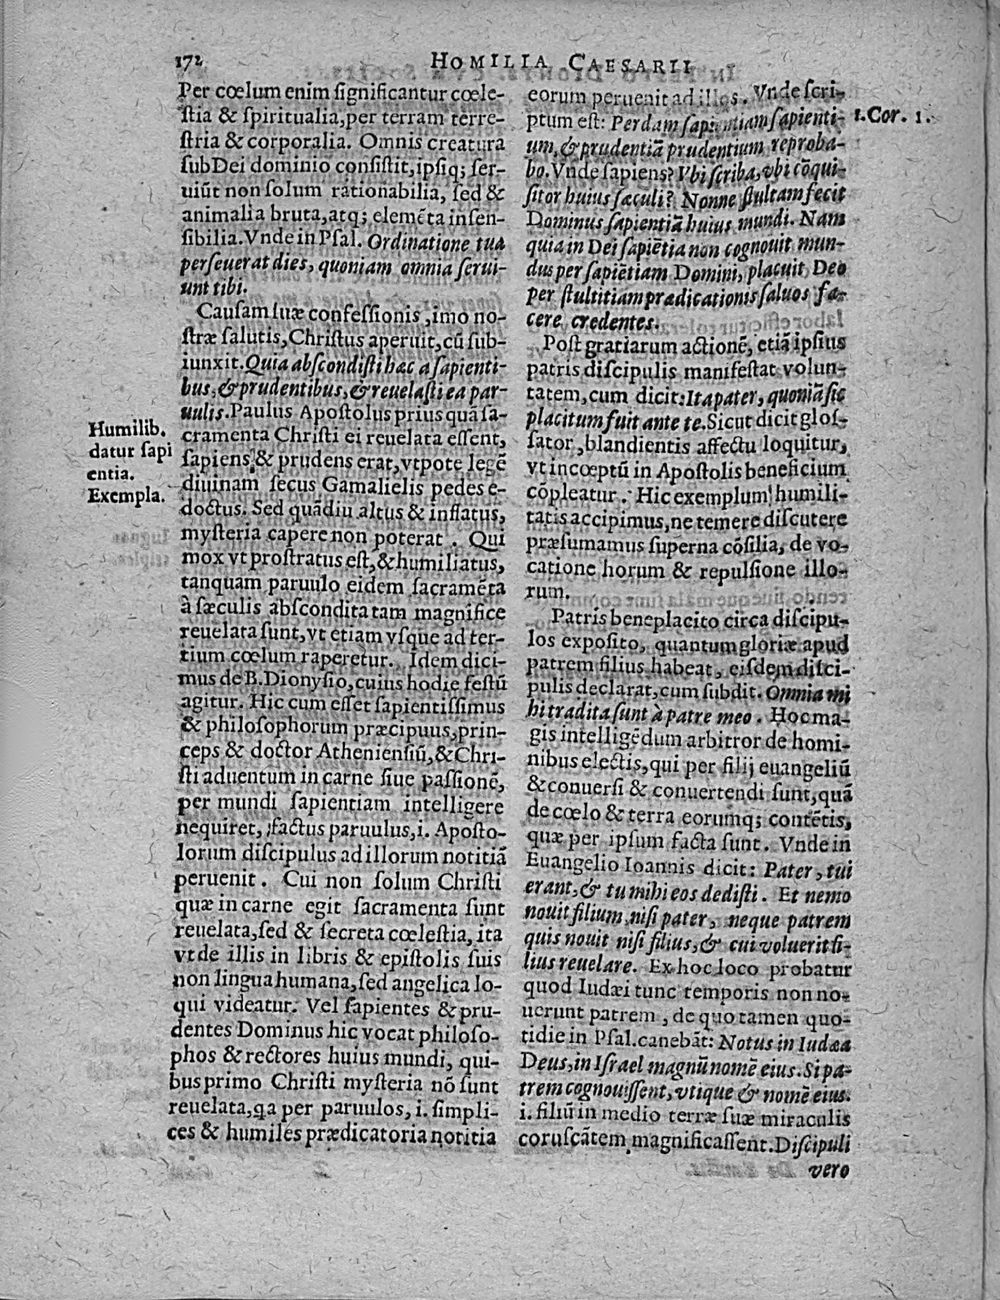 172
HOMILIA CAESARII
Per cœlum enim significantur cœle-
ſtia & ſpiritualia, per terram terre-
ſtria & corporalia. Omnis creatura
ſub Dei dominio conſiſtit, ipſiq; ſer-
uiũt non ſolum rationabilia, ſed &
animalia bruta, atq; elemẽta inſen-
ſibilia. Vnde in Pſal. Ordinatione tua
perſeuerat dies, quoniam omnia ſerui-
unt tibi.
Cauſam ſuæ confeſſionis, imo no-
ſtræ ſalutis, Chriſtus aperuit, cũ ſub-
iunxit. Quia abſcondiſti hæc a ſapienti-
bus, & prudentibus, & reuelaſti ea par-
uulis. Paulus Apoſtolus prius quã ſa-
cramenta Chriſti ei reuelata eſſent,
ſapiens & prudens erat, vtpote legẽ
diuinam ſecus Gamalielis pedes e-
doctus. Sed quãdiu altus & inflatus,
myſteria capere non poterat. Qui
mox vt proſtratus eſt, & humiliatus,
tanquam paruulo eidem ſacramẽta
à ſæculis abſcondita tam magnifice
reuelata ſunt, vt etiam vſque ad ter-
tium cœlum raperetur. Idem dici-
mus de B. Dionyſio, cuius hodie feſtũ
agitur. Hic cum eſſet ſapientiſſimus
& philoſophorum præcipuus, prin-
ceps & doctor Athenienſiũ, & Chri-
ſti aduentum in carne ſiue paſſionẽ,
per mundi ſapientiam intelligere
nequiret, factus paruulus, i. Apoſto-
lorum diſcipulus ad illorum notitiã
peruenit. Cui non ſolum Chriſti
quæ in carne egit ſacramenta ſunt
reuelata, ſed & ſecreta cœleſtia, ita
vt de illis in libris & epiſtolis ſuis
non lingua humana, ſed angelica lo-
qui videatur. Vel ſapientes & pru-
dentes Dominus hic vocat philoſo-
phos & rectores huius mundi, qui-
bus primo Chriſti myſteria nõ ſunt
reuelata, qa per paruulos, i. ſimpli-
ces & humiles prædicatoria notitia
Humilib.
datur ſapi
entia.
Exempla.
eorum peruenit ad illos. Vnde ſcri-
ptum eſt: Perdam ſapientiam ſapienti-
um, & prudentiã prudentium reproba-
bo. Vnde ſapiens? Vbi ſcriba, vbi cõqui-
ſitor huius ſæculi? Nonne ſtultam fecit
Dominus ſapientiã huius mundi. Nam
quia in Dei ſapiẽtia non cognouit mun-
dus per ſapiẽtiam Domini, placuit Deo
per ſtultitiam prædicationis ſaluos fa-
cere credentes.
Poſt gratiarum actionẽ, etiã ipſius
patris diſcipulis manifeſtat volun-
tatem, cum dicit: Ita pater, quoniã ſic
placitum fuit ante te. Sicut dicit gloſ-
ſator, blandientis affectu loquitur,
vt incœptũ in Apoſtolis beneficium
cõpleatur. Hic exemplum humili-
tatis accipimus, ne temere diſcutere
præſumamus ſuperna cõſilia, de vo-
catione horum & repulſione illo-
rum.
Patris beneplacito circa diſcipu-
los expoſito, quantum gloriæ apud
patrem filius habeat, eiſdem diſci-
pulis declarat, cum ſubdit. Omnia mi
hi tradita ſunt à patre meo. Hoc ma-
gis intelligẽdum arbitror de homi-
nibus electis, qui per filij euangeliũ
& conuerſi & conuertendi ſunt, quã
de cœlo & terra eorumq; contẽtis,
quæ per ipſum facta ſunt. Vnde in
Euangelio Ioannis dicit: Pater, tui
erant, & tu mihi eos dediſti. Et nemo
nouit filium, niſi pater, neque patrem
quis nouit niſi filius, & cui voluerit fi-
lius reuelare. Ex hoc loco probatur
quod Iudæi tunc temporis non no-
uerunt patrem, de quo tamen quo-
tidie in Pſal. canebãt: Notus in Iudæa
Deus, in Iſrael magnũ nomẽ eius. Si pa-
trem cognouiſſent, vtique & nomẽ eius.
i. filiũ in medio terræ ſuæ miraculis
coruſcãtem magnificaſſent. Diſcipuli
vero
1. Cor. 1.